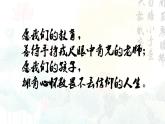 愿我们的教育，
善待手持戒尺眼中有光的老师；
愿我们的孩子，
拥有心怀敬畏不丢信仰的人生。